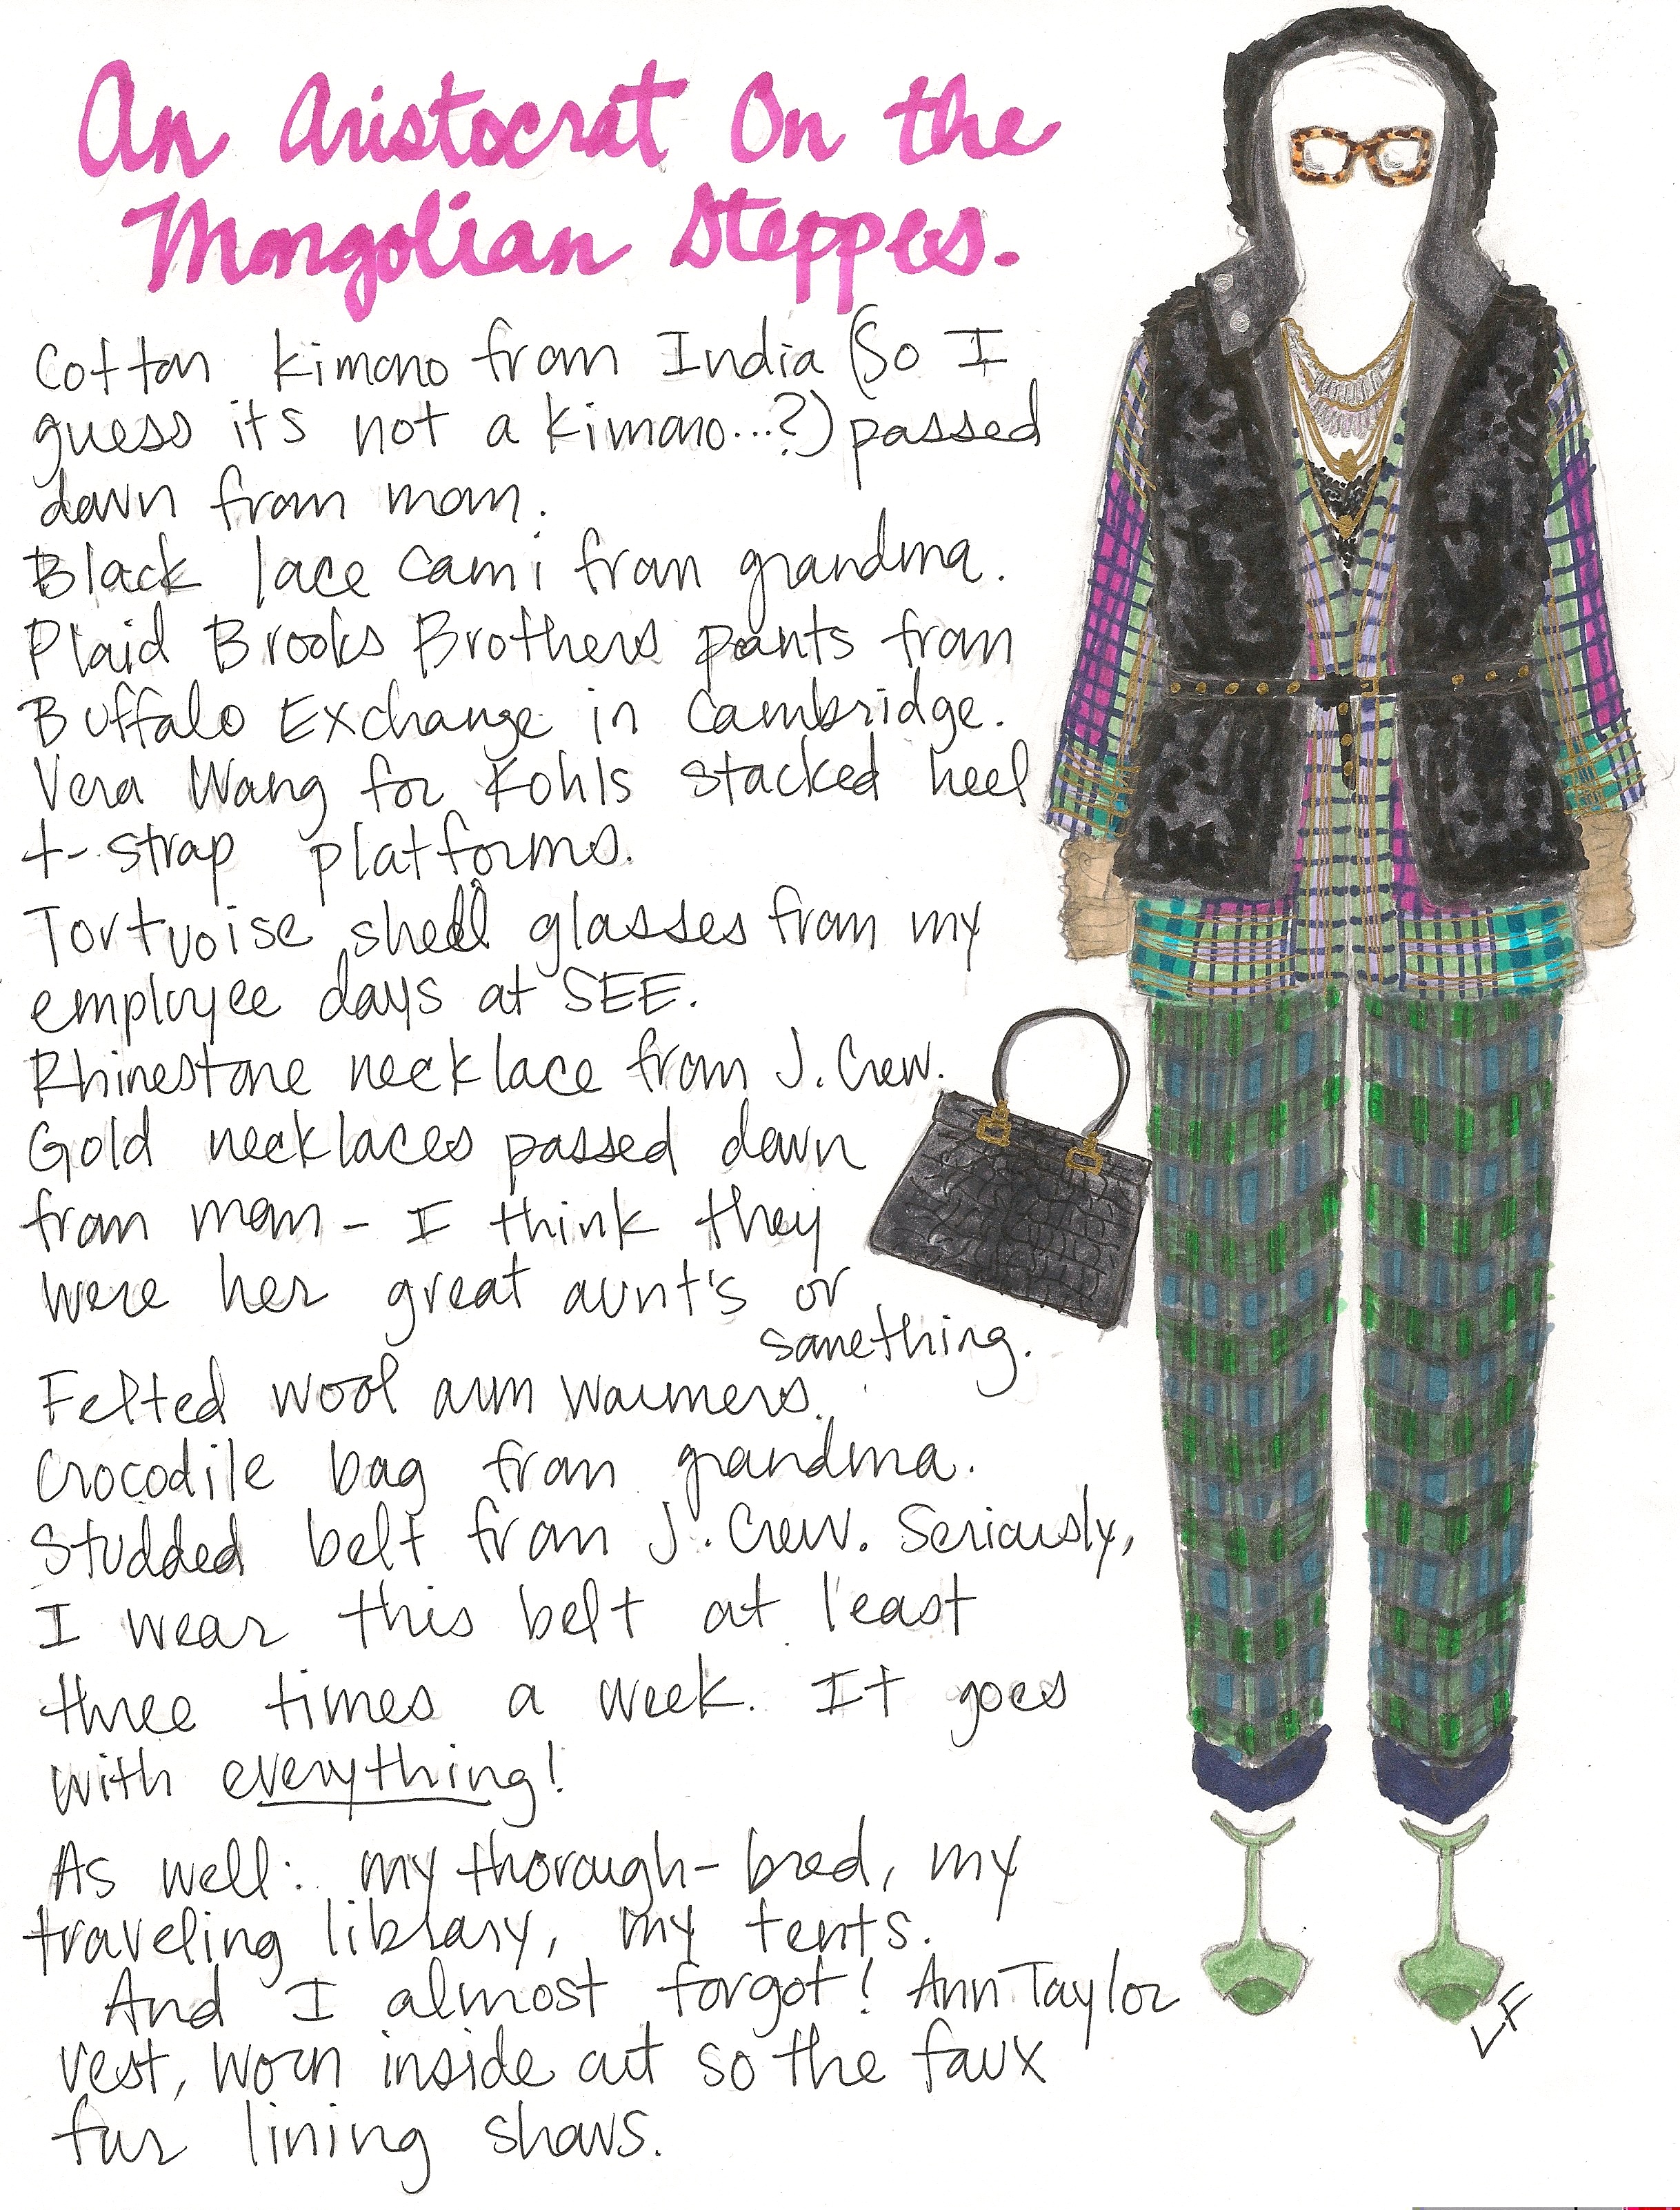 An Aristocrat On the
Mongolian Steppes.
Cotton kimono from India (So I
guess its not a kimono...?) passed
down from mom.
Black lace cami from grandma.
Plaid Brooks Brothers pants from
Buffalo Exchange in Cambridge.
Vera Wang for Kohls stacked heel
t-strap platforms.
Tortuoise shell glasses from my
employee days at SEE.
Rhinestone necklace from J. Crew.
Gold necklaces passed down
from mom - I think they
were her great aunt's or
something.
Felted wool arm warmers.
Crocodile bag from grandma.
Studded belt from J. Crew. Seriously,
I wear this belt at least
three times a week. It goes
with everything!
As well: my thorough-bred, my
traveling library, my tents.
And I almost forgot! Ann Taylor
vest, worn inside out so the faux
fur lining shows.
LF